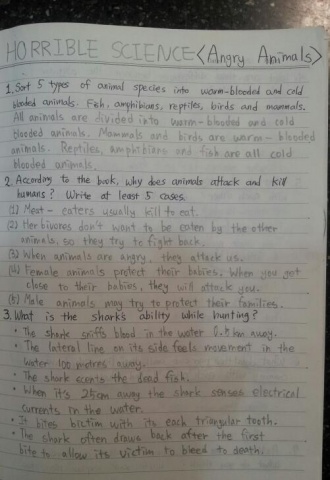 HORRIBLE SCIENCE <Angry Animals>
1. Sort 5 types of animal species into warm-blooded and cold
blooded animals. Fish, amphibians, reptiles, birds and mammals.
All animals are divided into warm-blooded and cold
blooded animals. Mammals and birds are warm-blooded
animals. Reptiles, amphibians and fish are all cold
blooded animals.
2. According to the book, why does animals attack and kill
humans? Write at least 5 cases.
(1) Meat-eaters usually kill to eat.
(2) Herbivores don't want to be eaten by the other
animals, so they try to fight back.
(3) When animals are angry, they attack us.
(4) Female animals protect their babies. When you get
close to their babies, they will attack you.
(5) Male animals may try to protect their families.
3. What is the shark's ability while hunting?
• The shark sniffs blood in the water 0.4 km away.
• The lateral line on its side feels movement in the
water 100 metres away.
• The shark scents the dead fish.
• When it's 25cm away the shark senses electrical
currents in the water.
• It bites bictim with its each triangular tooth.
• The shark often draws back after the first
bite to allow its victim to bleed to death.